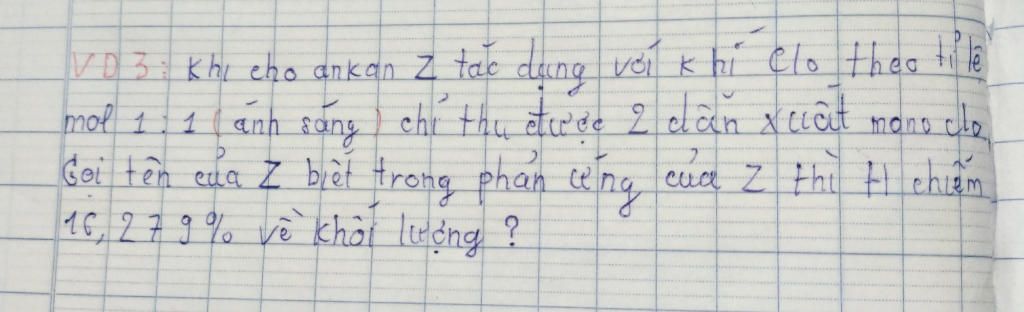 VD3: Khi cho ankan Z tác dụng với khí Clo theo tỉ lệ
mol 1:1 (ánh sáng) chỉ thu được 2 dẫn xuất mono clo.
Gọi tên của Z biết trong phản ứng của Z thì H chiếm
16,279% về khối lượng?